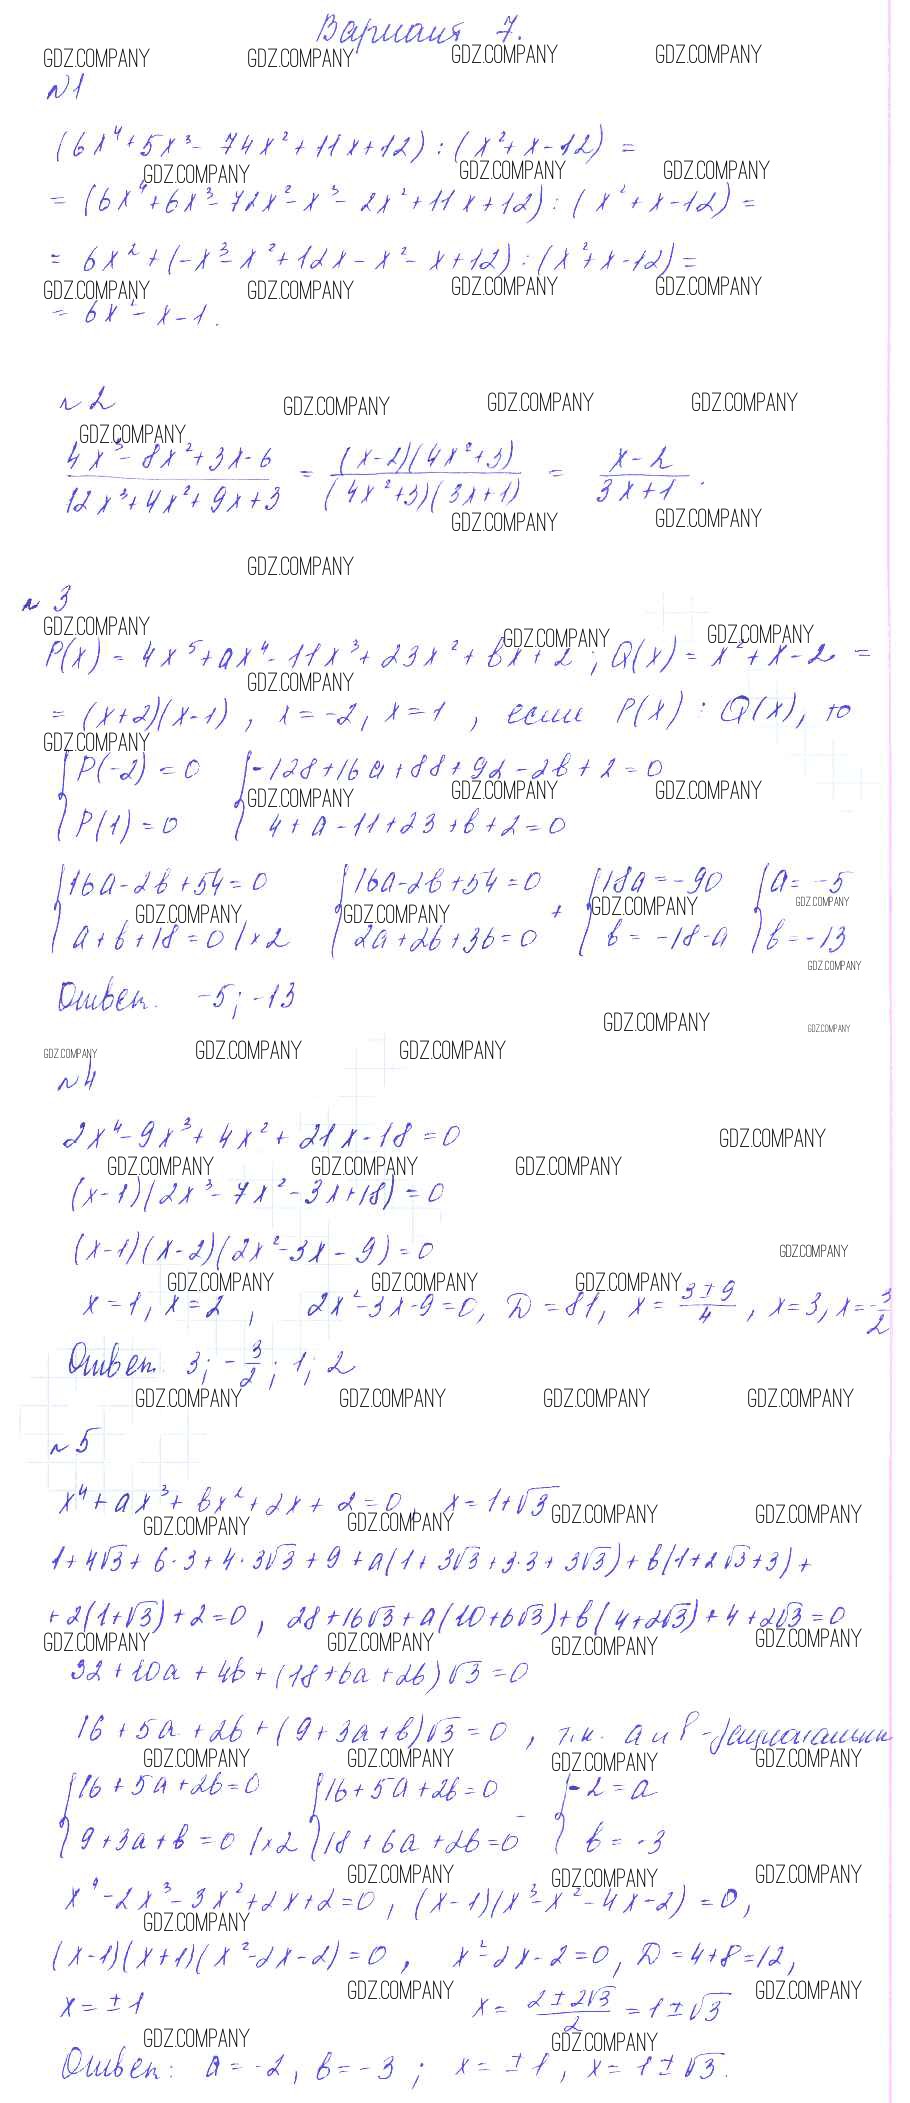 Вариант 7.
GDZ.COMPANY GDZ.COMPANY GDZ.COMPANY GDZ.COMPANY
№1
(6x⁴+5x³-74x²+11x+12):(x²+x-12)=
GDZ.COMPANY GDZ.COMPANY GDZ.COMPANY
=(6x⁴+6x³-72x²-x³-2x²+11x+12):(x²+x-12)=
=6x²+(-x³-x²+12x-x²-x+12):(x²+x-12)=
GDZ.COMPANY GDZ.COMPANY GDZ.COMPANY GDZ.COMPANY
=6x²-x-1.
№2
GDZ.COMPANY GDZ.COMPANY GDZ.COMPANY
GDZ.COMPANY
(4x³-8x²+3x-6)/(12x³+4x²+9x+3) = ((x-2)(4x²+3))/((4x²+3)(3x+1)) = (x-2)/(3x+1).
GDZ.COMPANY GDZ.COMPANY
GDZ.COMPANY
№3
GDZ.COMPANY GDZ.COMPANY GDZ.COMPANY
P(x)=4x⁵+ax⁴-11x³+23x²+bx+2; Q(x)=x²+x-2=
GDZ.COMPANY
=(x+2)(x-1), x=-2, x=1, если P(x):Q(x), то
GDZ.COMPANY
{P(-2)=0 {-128+16a+88+92-2b+2=0
GDZ.COMPANY GDZ.COMPANY GDZ.COMPANY
{P(1)=0 {4+a-11+23+b+2=0
{16a-2b+54=0 {16a-2b+54=0 {18a=-90 {a=-5
GDZ.COMPANY GDZ.COMPANY + GDZ.COMPANY GDZ.COMPANY
{a+b+18=0 |×2 {2a+2b+36=0 {b=-18-a {b=-13
GDZ.COMPANY
Ответ. -5; -13
GDZ.COMPANY GDZ.COMPANY
GDZ.COMPANY GDZ.COMPANY GDZ.COMPANY
№4
2x⁴-9x³+4x²+21x-18=0
GDZ.COMPANY
GDZ.COMPANY GDZ.COMPANY GDZ.COMPANY
(x-1)(2x³-7x²-3x+18)=0
(x-1)(x-2)(2x²-3x-9)=0
GDZ.COMPANY
GDZ.COMPANY GDZ.COMPANY GDZ.COMPANY
x=1, x=2, 2x²-3x-9=0, D=81, x=(3±9)/4, x=3, x=-3/2
Ответ. 3; -3/2; 1; 2
GDZ.COMPANY GDZ.COMPANY GDZ.COMPANY GDZ.COMPANY
№5
x⁴+ax³+bx²+2x+2=0, x=1+√3
GDZ.COMPANY GDZ.COMPANY GDZ.COMPANY GDZ.COMPANY
1+4√3+6·3+4·3√3+9+a(1+3√3+3·3+3√3)+b(1+2√3+3)+
+2(1+√3)+2=0, 28+16√3+a(10+6√3)+b(4+2√3)+4+2√3=0
GDZ.COMPANY GDZ.COMPANY GDZ.COMPANY GDZ.COMPANY
32+10a+4b+(18+6a+2b)√3=0
16+5a+2b+(9+3a+b)√3=0, т.к. a и b-рациональны
GDZ.COMPANY GDZ.COMPANY GDZ.COMPANY GDZ.COMPANY
{16+5a+2b=0 {16+5a+2b=0 {-2=a
{9+3a+b=0 |×2 {18+6a+2b=0 - {b=-3
GDZ.COMPANY GDZ.COMPANY GDZ.COMPANY
x⁴-2x³-3x²+2x+2=0, (x-1)(x³-x²-4x-2)=0,
GDZ.COMPANY
(x-1)(x+1)(x²-2x-2)=0, x²-2x-2=0, D=4+8=12,
GDZ.COMPANY GDZ.COMPANY
x=±1 x=(2±2√3)/2=1±√3
GDZ.COMPANY GDZ.COMPANY
Ответ: a=-2, b=-3; x=±1, x=1±√3.